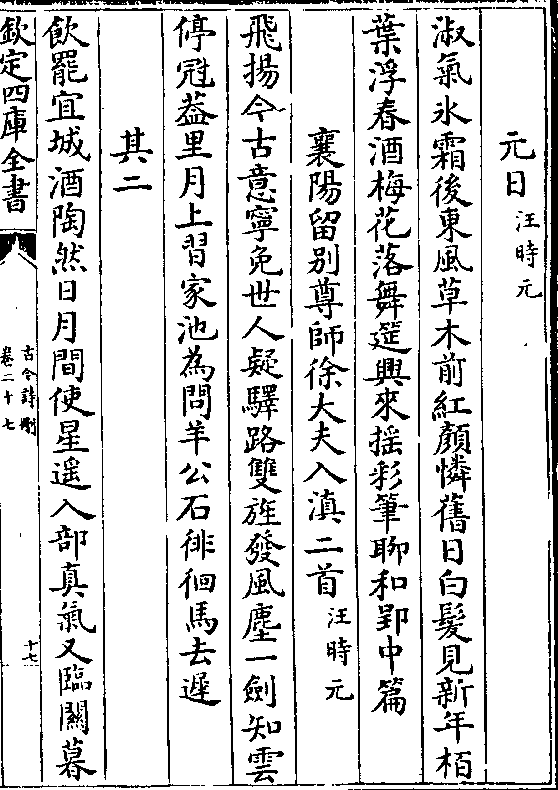 元日 汪時元
淑氣氷霜後東風草木前紅顏憐舊日白髮見新年栢
葉浮春酒梅花落舞筵興來揺彩筆聊和郢中篇
襄陽留別尊師徐大夫入滇二首 汪時元
飛揚今古意寧免世人疑驛路雙旌發風塵一劍知雲
停冠葢里月上習家池為問羊公石徘徊馬去遲
其二
飲罷宜城酒陶然日月間使星遥入部真氣又臨關暮
欽定四庫全書
古今詩刪
卷二十七
十七